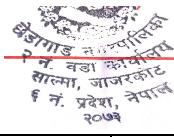 छेडागाड नगरपालिका
२ नं. वडा कार्यालय
साल्मा, जाजरकोट
६ नं. प्रदेश, नेपाल
२०७३